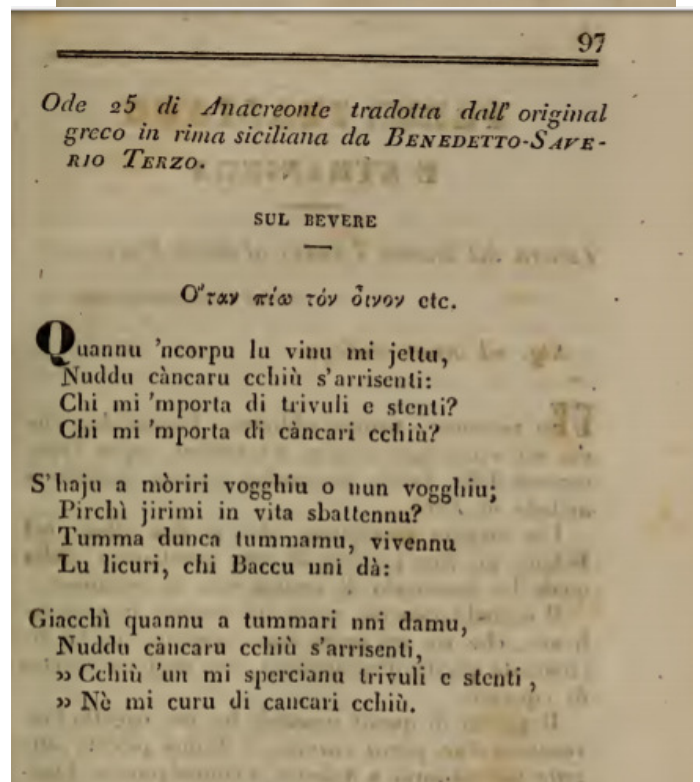 97
Ode 25 di Anacreonte tradotta dall' original
greco in rima siciliana da BENEDETTO-SAVE-
RIO TERZO.
SUL BEVERE
Ο῞ταν πίω τόν ὀ͂ινον etc.
Quannu 'ncorpu lu vinu mi jettu,
Nuddu càncaru cchiù s'arrisenti:
Chi mi 'mporta di trivuli e stenti?
Chi mi 'mporta di càncari cchiù?
S'haju a mòriri vogghiu o nun vogghiu;
Pirchì jirimi in vita sbattennu?
Tumma dunca tummamu, vivennu
Lu licuri, chi Baccu uni dà:
Giacchì quannu a tummari nni damu,
Nuddu càncaru cchiù s'arrisenti,
» Cchiù 'un mi spercianu trivuli e stenti,
» Nè mi curu di cancari cchiù.